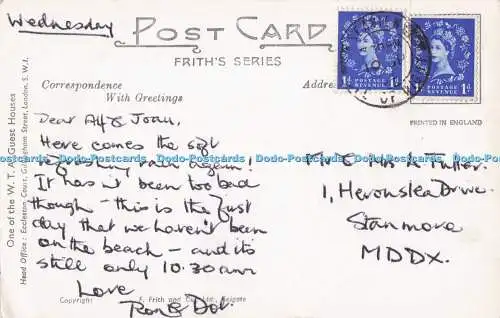 Wednesday
POST CARD
FRITH'S SERIES
Correspondence
With Greetings
Address
Dear Alf & Joan,
Here comes the soft
refreshing rain again!
It hasn't been too bad
though - this is the first
day that we haven't been
on the beach - and its
still only 10.30 am
Love
Ron & Dot.
Copyright
F. Frith and Co., Ltd., Reigate
One of the W. T. A. Guest Houses
Head Office: Eccleston Court, Gillingham Street, London, S.W.1.
1D POSTAGE REVENUE 1D
1D POSTAGE REVENUE 1D
PRINTED IN ENGLAND
Mr & Mrs A Tutter.
1, Heronslea Drive.
Stanmore
MDDX.
Dodo-Postcards Dodo-Postcards Dodo-Postcards Dodo-Postcards Dodo-Postcards Dodo-Postcards